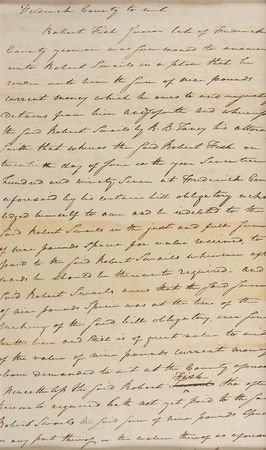 Frederick County to wit
Robert Fish Junior late of Frederick
County yeoman was summoned to answer
unto Robert Swails in a plea that he
render unto him the sum of nine pounds
current money which he owes to and unjustly
detains from him and whereupon
the said Robert Swails by R. B. Taney his attorney
saith that whereas the said Robert Fish on
twentieth day of June in the year Seventeen
hundred and ninety Seven at Frederick County
aforesaid by his certain bill obligatory acknow
ledged himself to owe and be indebted to the
said Robert Swails in the just and full sum
of nine pounds Specie for value received, to
paid to the said Robert Swails whenever after
wards he should be thereunto required. And
said Robert Swails avers that the said sum
of nine pounds Specie was at the time of the
making of the said bill obligatory, ever since
hath been and still is of great value to wit
of the value of nine pounds current money
above demanded to wit at the County aforesaid
nevertheless the said Robert Fish tho often
thereunto required hath not yet paid to the said
Robert Swails the said sum of nine pounds Specie
or any part thereof or the value thereof as aforesaid